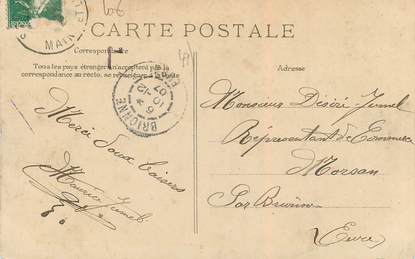 CARTE POSTALE
Correspondance
Tous les pays étrangers n'acceptent pas la
correspondance au recto, se renseigner à la Poste
Adresse
BRIONNE
Merci doux baisers
Maurice Jumel
Monsieur Désiré Jumel
Représentant de Commerce
Morsan
Par Brionne
(Eure)